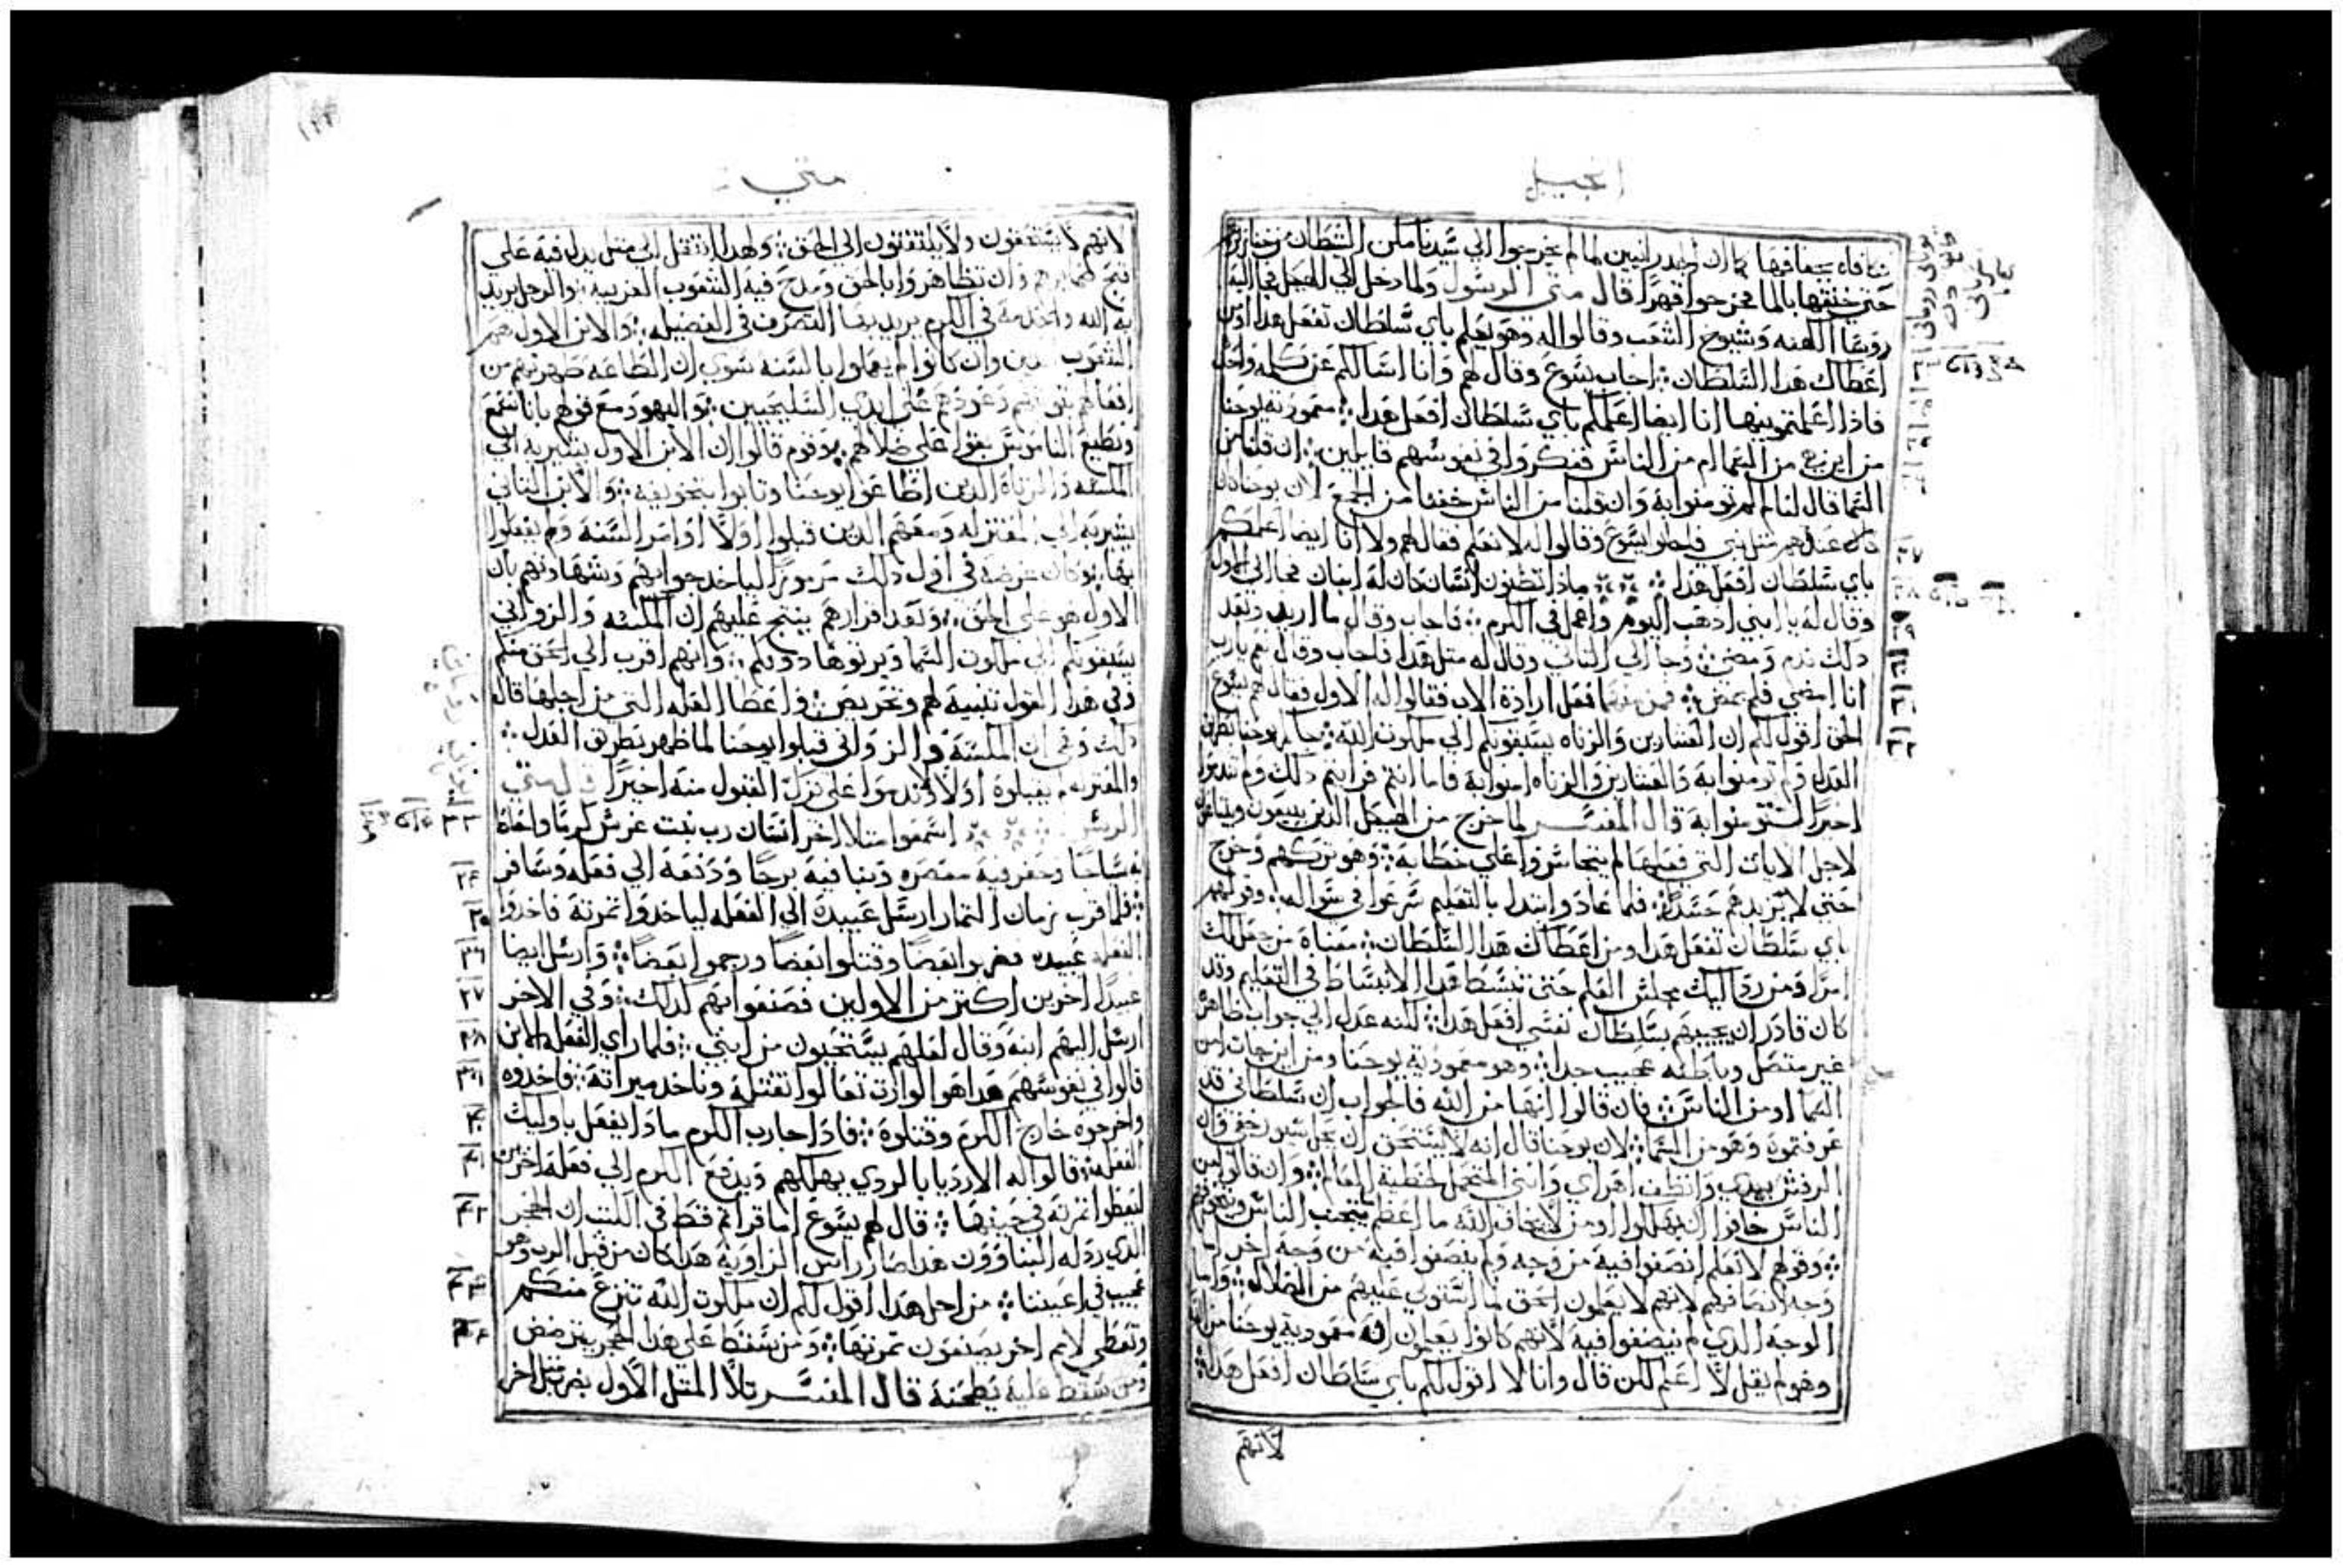 انجيل
حتي خنقها بالما فخرجوا قهرًا قال متي الرسول ولما دخل الي الهيكل جا اليه
روسا الكهنه وشيوخ الشعب وقالوا له وهو يعلم باي سلطان تفعل هدا او من
اعطاك هدا السلطان اجاب يسوع وقال لهم وانا اسالكم عن كلمه واحده
فاذا اعلمتموني بها انا ايضا اعلمكم باي سلطان افعل هدا معموديه يوحنا
من اين هي من السما ام من الناس ففكروا في نفوسهم قايلين ان قلنا من
السما قال لنا لم لم تومنوا به وان قلنا من الناس خفنا من الجمع لان يوحنا كان
عندهم مثل نبي فاجابوا يسوع وقالوا له لا نعلم فقال لهم ولا انا ايضا اعلمكم
باي سلطان افعل هدا مادا تظنون انسان كان له ابنان فجا الي الاول
وقال له يا ابني ادهب اليوم واعمل في الكرم فاجاب وقال ما اريد وبعد
دلك ندم ومضي وجا الي الثاني وقال له مثل هدا فاجاب وقال نعم يارب
انا امضي فلم يمض فمن منهما فعل ارادة الاب فقالوا له الاول فقال لهم يسوع
الحق اقول لكم ان العشارين والزناه يسبقونكم الي ملكوت الله جاكم يوحنا بطريق
العدل ولم تومنوا به والعشارين والزناه امنوا به فاما انتم فرايتم دلك ولم تندموا
اخيرًا لتومنوا به قال المفسر لما خرج من الهيكل الدين يبيعون ويبتاعون
لاجل الايات التي فعلها لم يتجاسروا علي خطابه وهو تركهم وخرج
حتي لا يزيدهم حسدًا فلما عاد وابتدا بالتعليم شرعوا في سواله وقولهم
باي سلطان تفعل هدا ومن اعطاك هدا السلطان معناه من جعل لك
امرًا ومن رد اليك مجلس العلم حتي تنبسط هدا الانبساط في التعليم وقد
كان قادر ان يجيبهم بسلطان نفسي افعل هدا لكنه عدل الي جواب ظاهره
غير متصل وباطنه عجيب جدا وهو معمودية يوحنا ومن اين جات امن
السما او من الناس فان قالوا انها من الله فالجواب ان سلطاني قد
عرفتموه وهو من السما لان يوحنا قال انه لا يستحق ان يحل سيور خفي وان
الرفش بيدي وانظف اهراي وانني المتحمل لخطية العالم وان قالوا من
الناس خافوا ان يهلكوا ومن لا يخاف الله ما اعظم يتجنب الناس
وقولهم لا نعلم انصفوا فيه من وجه ولم ينصفوا فيه من وجه اخر اما
وجه انصافهم لانهم لا يعلمون الحق لما استولي عليهم من الضلاله واما
الوجه الدي لم ينصفوا فيه لانهم كانوا يعلمون ان معمودية يوحنا من الله
وهو لم يقل لا اعلم لكن قال وانا لا اقول لكم باي سلطان افعل هدا
لانهم
متي
لانهم لا يستحقون ولا يلتفتون الي الحق ولهدا انتقل الي مثل يدل فيه علي
وان تظاهروا بالحق ومدح فيه الشعوب الغريبه والرجل يريد
به الله والخدمه في الكرم يريد بها التصرف في الفضيله والابن الاول هم
الشعوب وان كانوا لم يعملوا بالسنه سوي ان الطاعه ظهرت من
افعالهم علي ايدي السليحيين واليهود مع قولهم باننا نسمع
ونطيع الناموس بقوا علي ضلالهم وقوم قالوا ان الابن الاول يشير به الي
المكسه والزناه الدين اطاعوا يوحنا وتابوا بتخويفه والابن الثاني
يشير به الي المعتزله ومعهم الدين قبلوا اولًا اوامر السنه ولم يفعلوا
بها وكان غرضه في قول دلك مرموزًا لياخد جوابهم وشهادتهم بان
الاول هو علي الحق وبعد اقرارهم ينتج عليهم ان المكسه والزواني
يسبقونكم الي ملكوت السما ويرثوها دونكم وانهم اقرب الي الحق منكم
وفي هدا القول تنبيه لهم وتحريض واعطا العله التي من اجلها قال
دلك وهي ان المكسه والزواني قبلوا يوحنا لما ظهر بطريق العدل
والمعتزله لم يقبلوه اولًا ولا ندموا علي ترك القبول منه اخيرًا قال متي
الرسول اسمعوا مثلا اخر انسان رب بيت غرس كرمًا واحاط
به سياجًا وحفر فيه معصره وبنا فيه برجًا ودفعه الي فعله وسافر
فلما قرب زمان الثمار ارسل عبيده الي الفعله لياخدوا ثمرته فاخدوا
الفعله عبيده فضربوا بعضًا وقتلوا بعضًا ورجموا بعضًا وارسل ايضا
عبيدًا اخرين اكثر من الاولين فصنعوا بهم كدلك وفي الاخر
ارسل اليهم ابنه وقال لعلهم يستحيون من ابني فلما راي الفعله الابن
قالوا في نفوسهم هدا هو الوارث تعالوا نقتله وناخد ميراثه فاخدوه
واخرجوه خارج الكرم وقتلوه فادا جا رب الكرم مادا يفعل باوليك
الفعله قالوا له الارديا بالردي يهلكهم ويدفع الكرم الي فعله اخرين
ليعطوا ثمرته في حينها قال لهم يسوع اما قراتم قط في الكتب ان الحجر
الدي ردله البناوون هدا صار راس الزاوية هدا كان من قبل الرب وهو
عجيب في اعيننا من اجل هدا اقول لكم ان ملكوت الله تنزع منكم
وتعطي لامم اخر يصنعون ثمرتها ومن سقط علي هدا الحجر يترضض
ومن سقط عليه يطحنه قال المفسر تلا المثل الاول بضرب مثل اخر